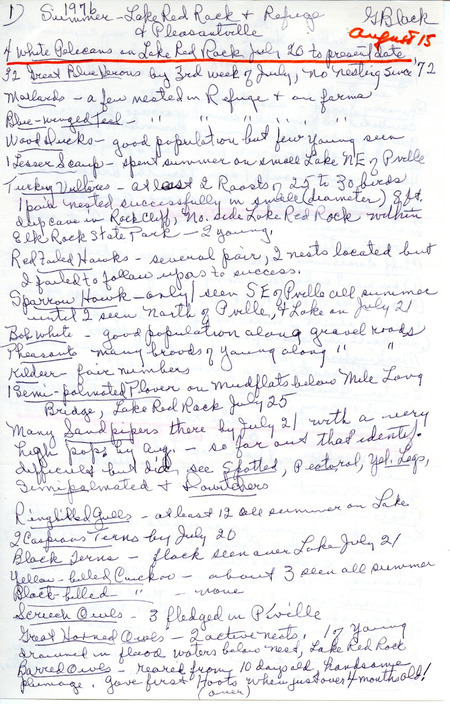 1) Summer 1976 - Lake Red Rock & Refuge
& Pleasantville
G Black
August 15
4 White Pelicans on Lake Red Rock July 20 to present date
32 Great Blue Herons by 3rd week of July, no nesting since '72
Mallards - a few nested in Refuge & on farms
Blue-winged Teal - " " " " " "
Wood Ducks - good population but few young seen
1 Lesser Scaup - spent summer on small Lake NE of Pville
Turkey Vultures - at least 2 Roosts of 25 to 30 birds
1 pair nested successfully in small (diameter) 8 ft.
deep cave in Rock cliff, No. side Lake Red Rock within
Elk Rock State Park - 2 young.
Red tailed Hawks - several pair, 2 nests located but
I failed to follow up as to success.
Sparrow Hawk - only 1 seen SE of Pville all summer
until 2 seen North of Pville, & Lake on July 21
Bob White - good population along gravel roads
Pheasants many broods of young along " "
Killdeer fair numbers
1 Semi-palmated Plover on Mudflats below Mile Long
Bridge, Lake Red Rock July 25
Many Sandpipers there by July 21 with a very
high pop. by Aug. - so far out that identif.
difficult but did see Spotted, Pectoral, Yel. Legs,
Semipalmated & Dowitchers
Ringbilled Gulls - at least 12 all summer on Lake
2 Caspian Terns by July 20
Black Terns - flock seen over Lake July 21
Yellow-billed Cuckoo - about 3 seen all summer
Black-billed " - none
Screech Owls - 3 fledged in P'ville
Great Horned Owls - 2 active nests, 1 of Young
drowned in flood waters below nest, Lake Red Rock
Barred Owls - reared from 10 days old, handsome
plumage. Gave first Hoots when just over 4 months old!
(over)